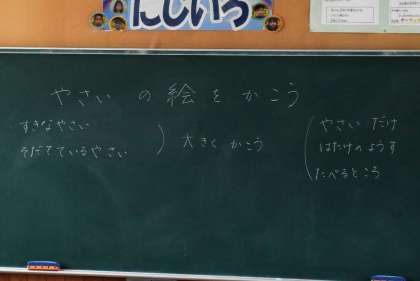 にじいろ
やさい の 絵 を かこう
すきなやさい
そだてているやさい
大きく かこう
やさい だけ
はたけのようす
たべるところ